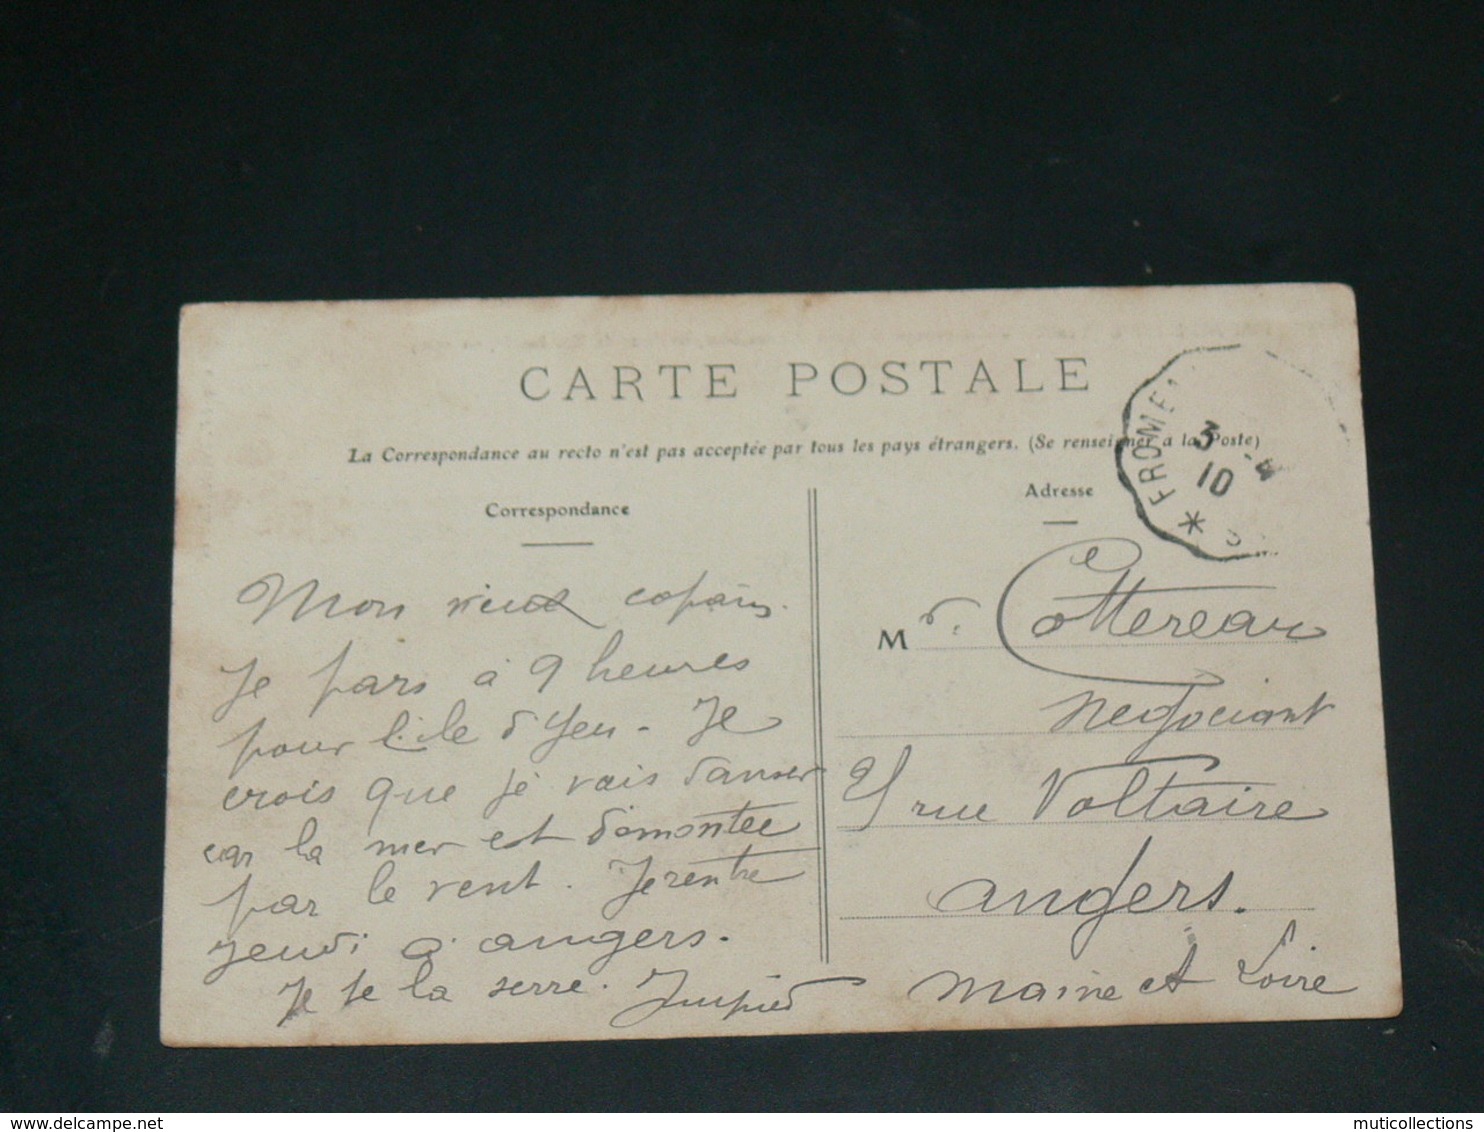 CARTE POSTALE
La Correspondance au recto n'est pas acceptée par tous les pays étrangers. (Se renseigner à la Poste)
Correspondance
Mon vieux copain.
Je pars à 9 heures
pour l'ile d'Yeu - Je
crois que je vais danser
car la mer est démontée
par le vent. Je rentre
jeudi a angers.
Je te la serre.
Adresse
Mr. Cottereau
negociant
rue Voltaire
angers.
Maine et Loire
* FROME
3 -4
10
delcampe.net
muticollections